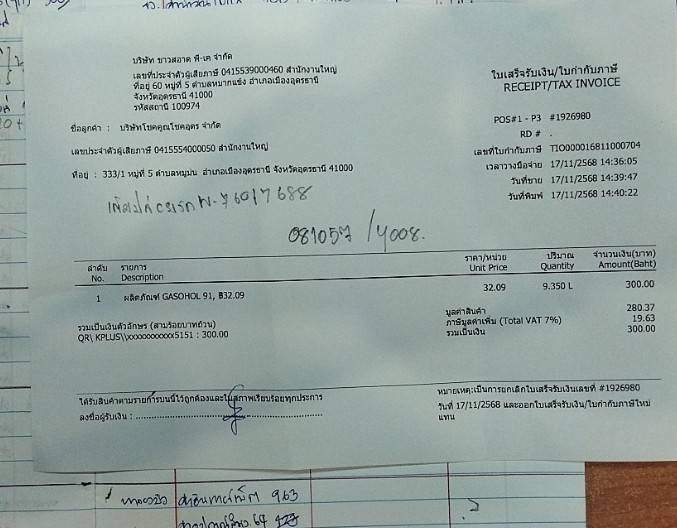 บริษัท ขาวสอาด พี-เค จำกัด
เลขที่ประจำตัวผู้เสียภาษี 0415539000460 สำนักงานใหญ่
ที่อยู่ 60 หมู่ที่ 5 ตำบลหมากแข้ง อำเภอเมืองอุดรธานี
จังหวัดอุดรธานี 41000
รหัสสถานี 100974
ใบเสร็จรับเงิน/ใบกำกับภาษี
RECEIPT/TAX INVOICE
POS#1 - P3 #1926980
RD # .
ชื่อลูกค้า : บริษัทโชคคูณโชคอุดร จำกัด
เลขประจำตัวผู้เสียภาษี 0415554000050 สำนักงานใหญ่
ที่อยู่ : 333/1 หมู่ที่ 5 ตำบลหมูม่น อำเภอเมืองอุดรธานี จังหวัดอุดรธานี 41000
เลขที่ใบกำกับภาษี TIO000016811000704
เวลาวางมือจ่าย 17/11/2568 14:36:05
วันที่ขาย 17/11/2568 14:39:47
วันที่พิมพ์ 17/11/2568 14:40:22
081057 /4008.
ลำดับ รายการ ราคา/หน่วย ปริมาณ จำนวนเงิน(บาท)
No. Description Unit Price Quantity Amount(Baht)
1 ผลิตภัณฑ์ GASOHOL 91, ฿32.09 32.09 9.350 L 300.00
รวมเป็นเงินตัวอักษร (สามร้อยบาทถ้วน)
QR\ KPLUS\\xxxxxxxxxxx5151 : 300.00
มูลค่าสินค้า 280.37
ภาษีมูลค่าเพิ่ม (Total VAT 7%) 19.63
รวมเป็นเงิน 300.00
ได้รับสินค้าตามรายการบนนี้ไว้ถูกต้องและในสภาพเรียบร้อยทุกประการ
ลงชื่อผู้รับเงิน :
หมายเหตุ:เป็นการยกเลิกใบเสร็จรับเงินเลขที่ #1926980
วันที่ 17/11/2568 และออกใบเสร็จรับเงิน/ใบกำกับภาษีใหม่
แทน
963